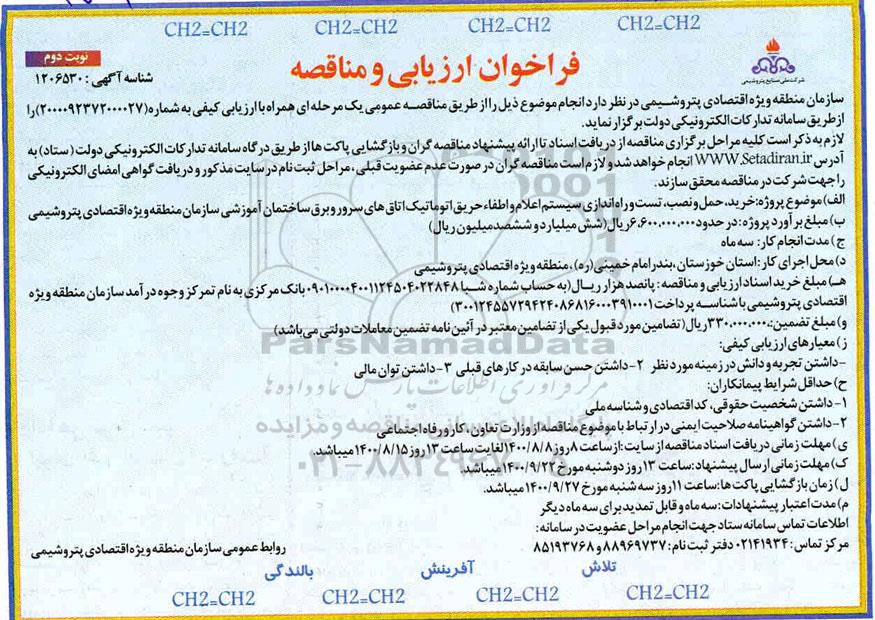 CH2=CH2 CH2=CH2 CH2=CH2 CH2=CH2
نوبت دوم
فراخوان ارزیابی و مناقصه
شناسه آگهی : ۱۲۰۶۵۳۰
شرکت ملی صنایع پتروشیمی
سازمان منطقه ویژه اقتصادی پتروشیمی در نظر دارد انجام موضوع ذیل را از طریق مناقصه عمومی یک مرحله ای همراه با ارزیابی کیفی به شماره (۲۰۰۰۰۹۲۳۷۲۰۰۰۰۲۷) را
از طریق سامانه تدارکات الکترونیکی دولت برگزار نماید.
لازم به ذکر است کلیه مراحل برگزاری مناقصه از دریافت اسناد تا ارائه پیشنهاد مناقصه گران و بازگشایی پاکت ها از طریق درگاه سامانه تدارکات الکترونیکی دولت (ستاد) به
آدرس WWW.Setadiran.ir انجام خواهد شد و لازم است مناقصه گران در صورت عدم عضویت قبلی، مراحل ثبت نام در سایت مذکور و دریافت گواهی امضای الکترونیکی
را جهت شرکت در مناقصه محقق سازند.
الف) موضوع پروژه: خرید، حمل و نصب، تست و راه اندازی سیستم اعلام و اطفاء حریق اتوماتیک اتاق های سرور و برق ساختمان آموزشی سازمان منطقه ویژه اقتصادی پتروشیمی
ب) مبلغ برآورد پروژه: در حدود ۶,۶۰۰,۰۰۰,۰۰۰ ریال (شش میلیارد و ششصد میلیون ریال)
ج) مدت انجام کار: سه ماه
د) محل اجرای کار: استان خوزستان، بندر امام خمینی (ره)، منطقه ویژه اقتصادی پتروشیمی
هـ) مبلغ خرید اسناد ارزیابی و مناقصه: پانصد هزار ریال (به حساب شماره شبا ۰۹۰۱۰۰۰۰۴۰۰۱۱۲۴۵۰۴۰۲۲۸۴۸ بانک مرکزی به نام تمرکز وجوه درآمد سازمان منطقه ویژه
اقتصادی پتروشیمی با شناسه پرداخت ۳۰۰۱۲۴۵۵۷۲۹۴۲۴۰۸۶۸۱۶۰۰۰۳۹۱۰۰۰۱)
و) مبلغ تضمین: ۳۳۰,۰۰۰,۰۰۰ ریال (تضامین مورد قبول یکی از تضامین معتبر در آئین نامه تضمین معاملات دولتی می باشد)
ز) معیارهای ارزیابی کیفی:
-داشتن تجربه و دانش در زمینه مورد نظر ۲-داشتن حسن سابقه در کارهای قبلی ۳-داشتن توان مالی
ح) حداقل شرایط پیمانکاران:
۱-داشتن شخصیت حقوقی، کد اقتصادی و شناسه ملی
۲-داشتن گواهینامه صلاحیت ایمنی در ارتباط با موضوع مناقصه از وزارت تعاون، کار و رفاه اجتماعی
ی) مهلت زمانی دریافت اسناد مناقصه از سایت: از ساعت ۸ روز ۱۴۰۰/۸/۸ لغایت ساعت ۱۳ روز ۱۴۰۰/۸/۱۵ میباشد.
ک) مهلت زمانی ارسال پیشنهاد: ساعت ۱۳ روز دوشنبه مورخ ۱۴۰۰/۹/۲۲ میباشد.
ل) زمان بازگشایی پاکت ها: ساعت ۱۱ روز سه شنبه مورخ ۱۴۰۰/۹/۲۷ میباشد.
م) مدت اعتبار پیشنهادات: سه ماه و قابل تمدید برای سه ماه دیگر
اطلاعات تماس سامانه ستاد جهت انجام مراحل عضویت در سامانه:
مرکز تماس: ۰۲۱۴۱۹۳۴ دفتر ثبت نام: ۸۸۹۶۹۷۳۷ و ۸۵۱۹۳۷۶۸
روابط عمومی سازمان منطقه ویژه اقتصادی پتروشیمی
تلاش آفرینش بالندگی
CH2=CH2 CH2=CH2 CH2=CH2 CH2=CH2
ParsNamadData
مرکز فرآوری اطلاعات پارس نماد داده ها
۰۲۱-۸۸۳۴۹۶۷۰